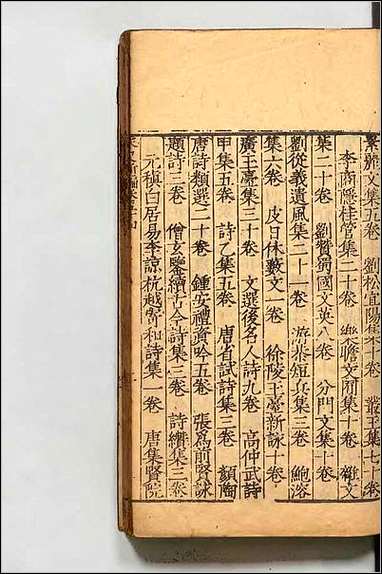 文集五卷 劉松宜陽集十卷 叢玉集七十卷
李商隱桂管集二十卷 樂瞻文囿集十卷 雜文
集二十卷 劉贊蜀國文英八卷 分門文集十卷
劉從義遺風集二十一卷 游恭短兵集三卷 鮑溶
集六卷 皮日休藪文一卷 徐陵玉臺新詠十卷
廣玉臺集三十卷 文選後名人詩九卷 高仲武詩
甲集五卷 詩乙集五卷 唐省試詩集三卷 顧陶
唐詩類選二十卷 鍾安禮資吟五卷 張爲前賢詠
題詩三卷 僧玄鑒續古今詩集三卷 詩纘集三卷
元稹白居易李諒杭越寄和詩集一卷 唐集賢院